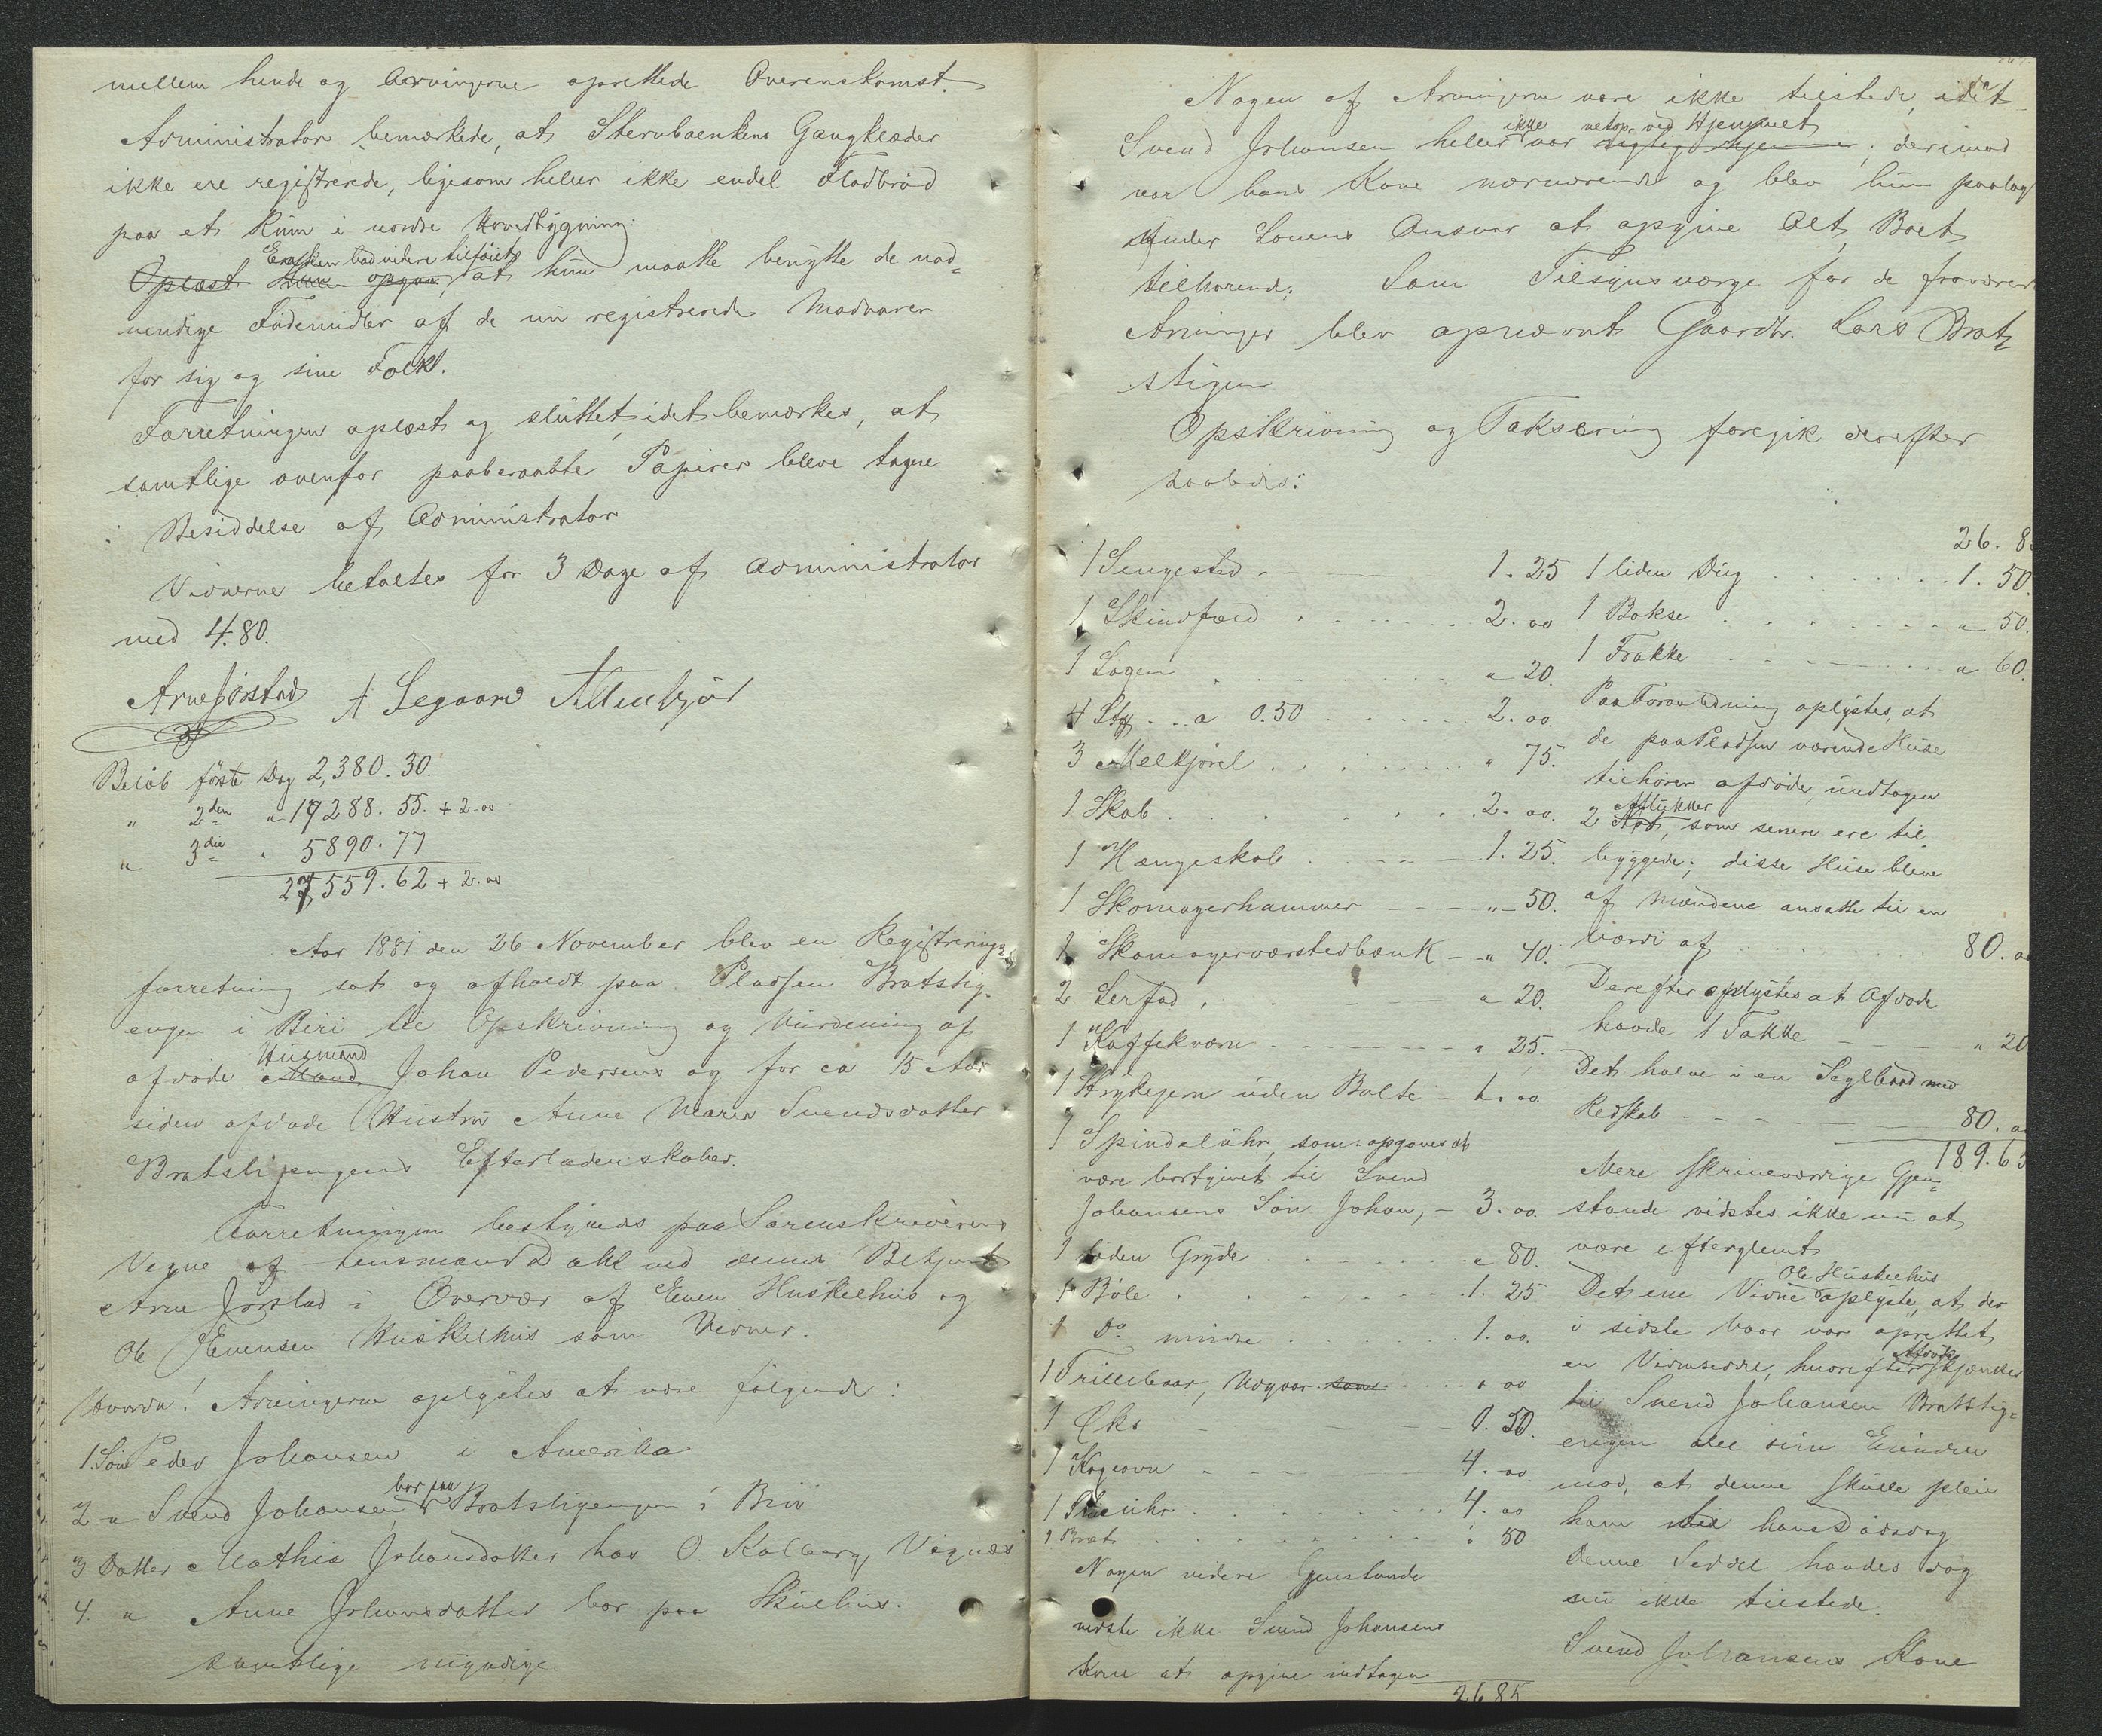 mellem hende og Arvingerne oprettede Overenskomst.
Administrator bemærkede, at Stervboenkens Gangklæder
ikke ere registrerede, ligesom heller ikke endel Fladbrød
paa et Rum i nordre Hovedbygning:
Enken bad videre tilføiet
Oplæst Hun opgav, at hun maatte benytte de nød-
vendige Fødemidler af de nu registrerede Madvarer
for sig og sine Folk.
Forretningen oplæst og sluttet, idet bemærkes, at
samtlige ovenfor paaberaabte Papirer bleve tagne
i Besiddelse af Administrator
Vidnerne betaltes for 3 Dage af Administrator
med 4.80.
Arne Jørstad A Segaard
Beløb første Dag 2,380.30.
" 2den " 19288.55. + 2.00
" 3die " 5890.77
27,559.62 + 2.00
Aar 1881 den 26 November blev en Registrerings-
forretning sat og afholdt paa Pladsen Bratstig-
engen i Biri til Opskrivning og Vurdering af
Husmand
afdøde Mand Johan Pedersens og for ca 15 Aar
siden afdøde Hustru Anne Marie Svendsdatter
Bratstigengens Efterladenskaber.
Forretningen bestyredes paa Sorenskriverens
Vegne af Lensmand Dahl ved dennes Betjent
Arne Jørstad i Overvær af Even Huskelhus og
Ole Evensen Huskelhus som Vidner.
Hvorda! Arvingerne oplystes at være følgende:
1. Søn Peder Johansen i Amerika
2 " Svend Johansen bor paa Bratstigengen i Biri
3 Datter Mathia Johansdatter hos O. Kolberg, Vignæs
4. " Anne Johansdatter bor paa Skulhus.
samtlige myndige.
Nogen af Arvingerne vare ikke tilstede, idet
ikke netop ved Hjemmet
Svend Johansen heller var ; derimod
var hans Kone nærværende og blev hun paalagt
under Lovens Ansvar at opgive Alt, Boet
tilhørende. Som Tilsynsværge for de fraværende
Arvinger blev opnævnt Gaardbr. Lars Brat-
stigen
Opskrivning og Taksering foregik derefter
saaledes:
1 Sengested 1.25
1 Skindfæld 2.00
1 Lagen " 20.
4 Stk a 0.50 2.00.
3 Melkjørel " 75.
1 Skab 2.00.
1 Hængeskab 1.25.
1 Skomagerhammer " 50.
1 Skomagerværstedbænk " 40.
2 Lerfad " 20.
1 Kaffekværn " 25.
1 Strykejern uden Bolte 1.00
1 Spindeluhr, som opgaves at
være bortgivet til Svend
Johansens Søn Johan, 3.00.
1 liden Gryde " 80.
1 Bøle 1.25
1 Do mindre 1.00.
1 Trillebaar, Udgaar som " 00
1 Øks 0.50.
1 Kogeovn 4.00.
1 Stueuhr 4.00
1 Bræt " 50
Nogen videre Gjenstande
vidste ikke Svend Johansens
Kone at opgive undtagen
26 85
26.8
1 liden Dug 1.50.
1 Bokse " 50.
1 Frakke " 60.
Paa Foranledning oplystes, at
de paa Pladsen værende Huse
tilhører afdøde undtagen
Stykker
2 , som senere ere til-
byggede; disse Huse bleve
af Mændene ansatte til en
Værdi af 80.00
Derefter oplystes at Afdøde
havde 1 Takke " 20
Det halve i en Seglbaad med
Redskab 80.00
189.65
Mere skriveværdige Gjen-
stande vidstes ikke nu at
være efterglemt
Ole Huskelhus
Det ene Vidne oplyste, at der
i sidste Vaar var oprettet
Afdøde
en Vidneseddel, hvorefter skjænker
til Svend Johansen Bratstig-
engen alle sine Eiendele
mod, at denne skulle pleie
ham til hans Dødsdag
Denne Seddel havdes dog
nu ikke tilstede.
Svend Johansens Kone